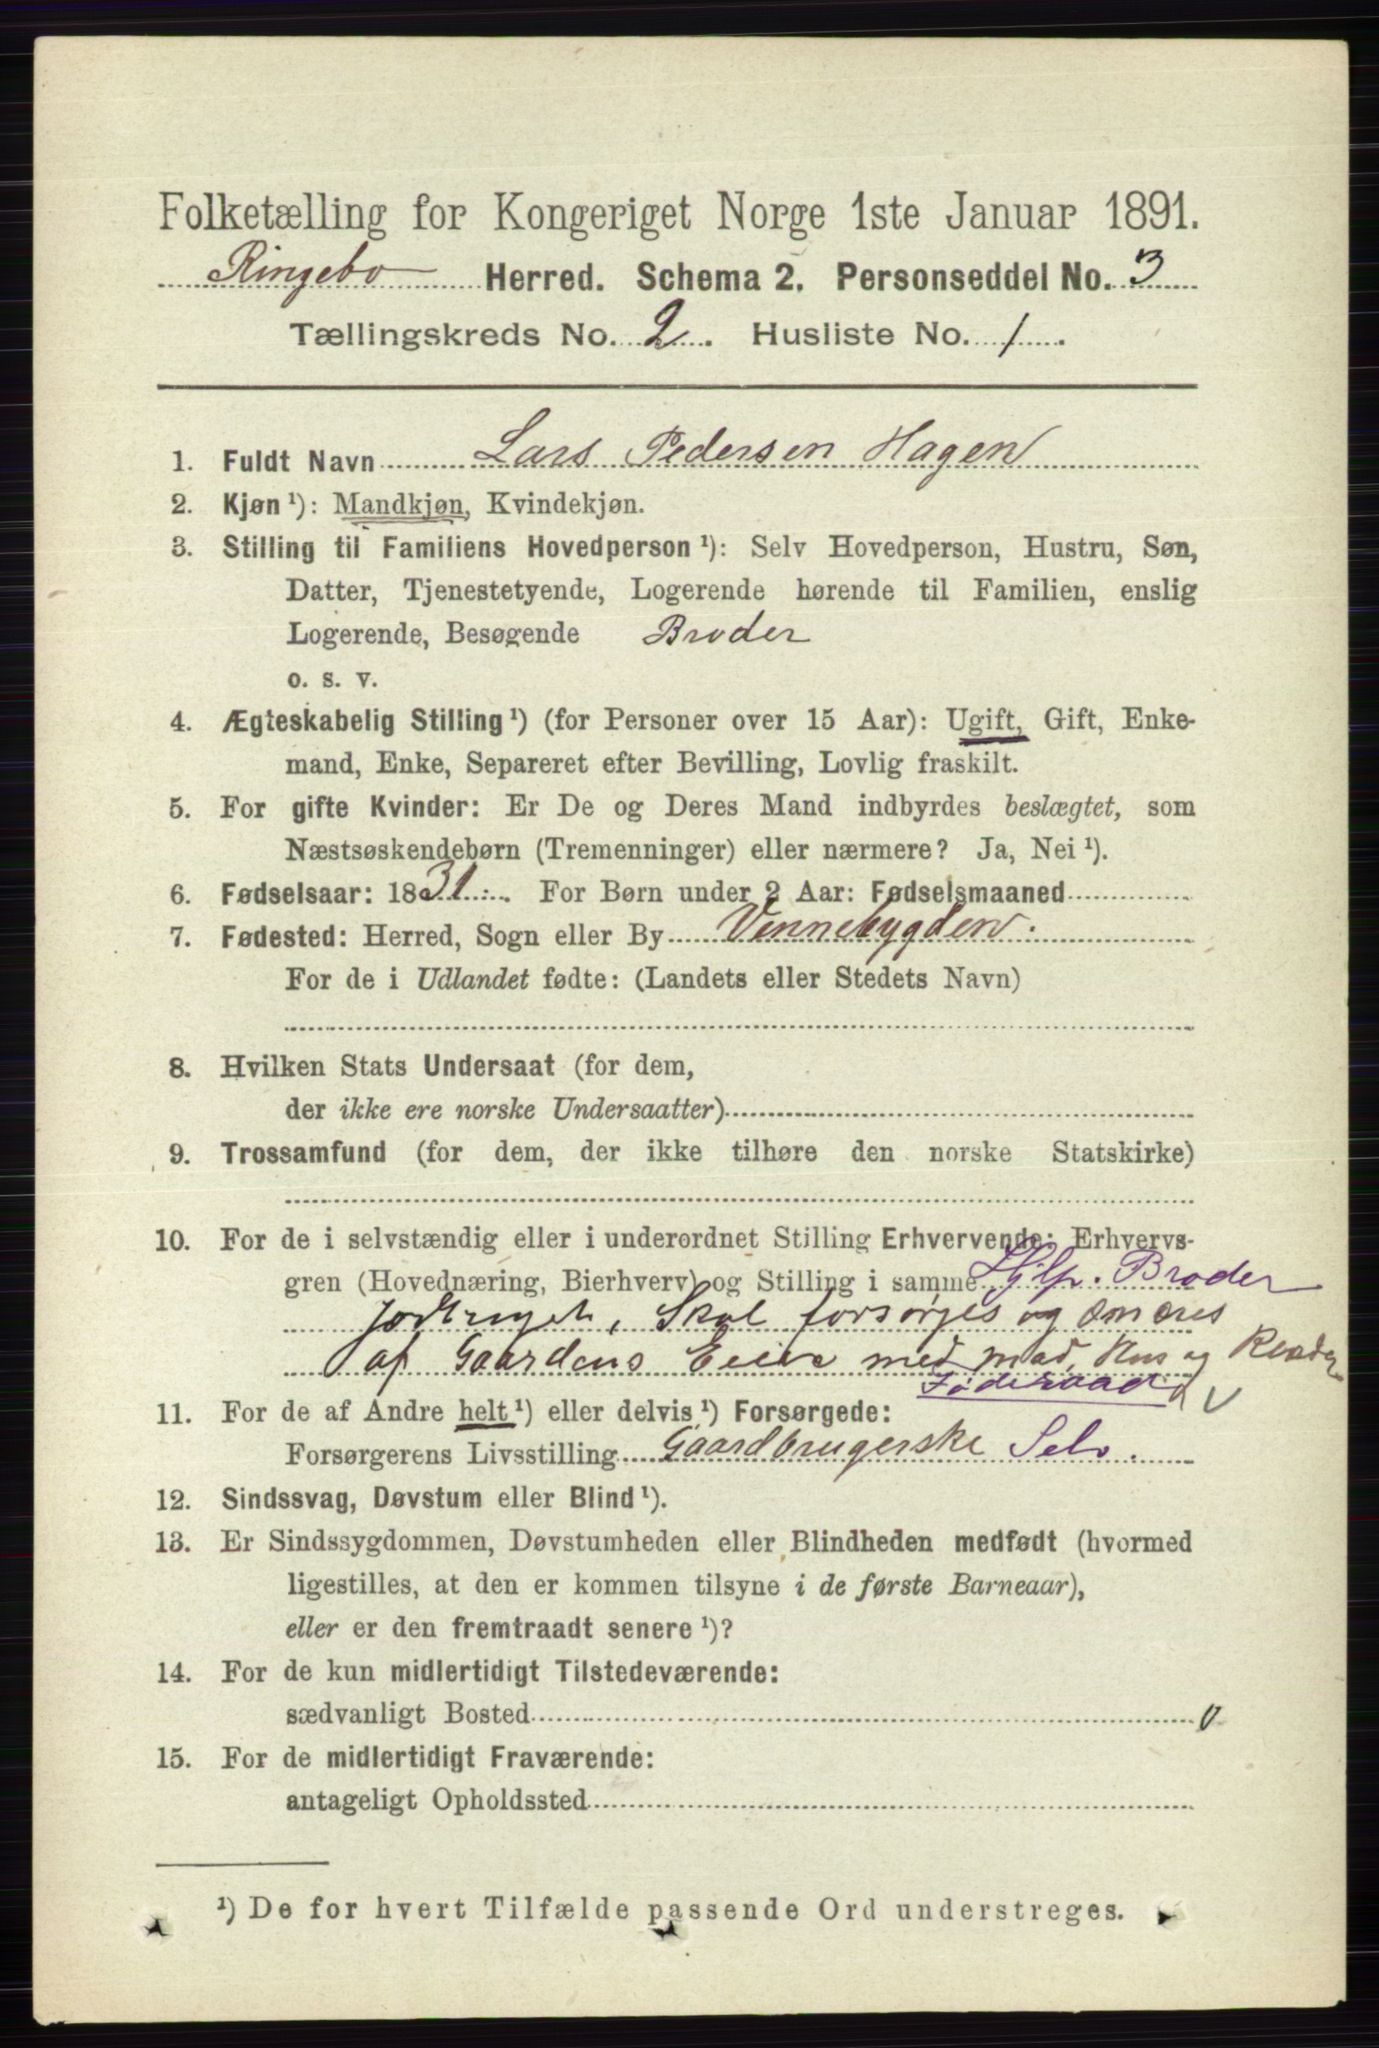 Folketælling for Kongeriget Norge 1ste Januar 1891.
Ringebo Herred. Schema 2. Personseddel No. 3
Tællingskreds No. 2. Husliste No. 1.
1. Fuldt Navn Lars Pedersen Hagen
2. Kjøn ¹): Mandkjøn, Kvindekjøn.
3. Stilling til Familiens Hovedperson ¹): Selv Hovedperson, Hustru, Søn,
Datter, Tjenestetyende, Logerende hørende til Familien, enslig
Logerende, Besøgende Broder
o. s. v.
4. Ægteskabelig Stilling ¹) (for Personer over 15 Aar): Ugift, Gift, Enke-
mand, Enke, Separeret efter Bevilling, Lovlig fraskilt.
5. For gifte Kvinder: Er De og Deres Mand indbyrdes beslægtet, som
Næstsøskendebørn (Tremenninger) eller nærmere? Ja, Nei ¹).
6. Fødselsaar: 1831. For Børn under 2 Aar: Fødselsmaaned
7. Fødested: Herred, Sogn eller By Vennebygden.
For de i Udlandet fødte: (Landets eller Stedets Navn)
8. Hvilken Stats Undersaat (for dem,
der ikke ere norske Undersaatter)
9. Trossamfund (for dem, der ikke tilhøre den norske Statskirke)
10. For de i selvstændig eller i underordnet Stilling Erhvervende: Erhvervs-
gren (Hovednæring, Bierhverv) og Stilling i samme Hjlp. Broder
Jordbruget, Skal forsørges og
af Gaardens Eeier med Mad, Hus og Klæder
Føderaad
11. For de af Andre helt ¹) eller delvis ¹) Forsørgede:
Forsørgerens Livsstilling Gaardbrugerske Selv.
12. Sindssvag, Døvstum eller Blind ¹).
13. Er Sindssygdommen, Døvstumheden eller Blindheden medfødt (hvormed
ligestilles, at den er kommen tilsyne i de første Barneaar),
eller er den fremtraadt senere ¹)?
14. For de kun midlertidigt Tilstedeværende:
sædvanligt Bosted 0
15. For de midlertidigt Fraværende:
antageligt Opholdssted
¹) De for hvert Tilfælde passende Ord understreges.